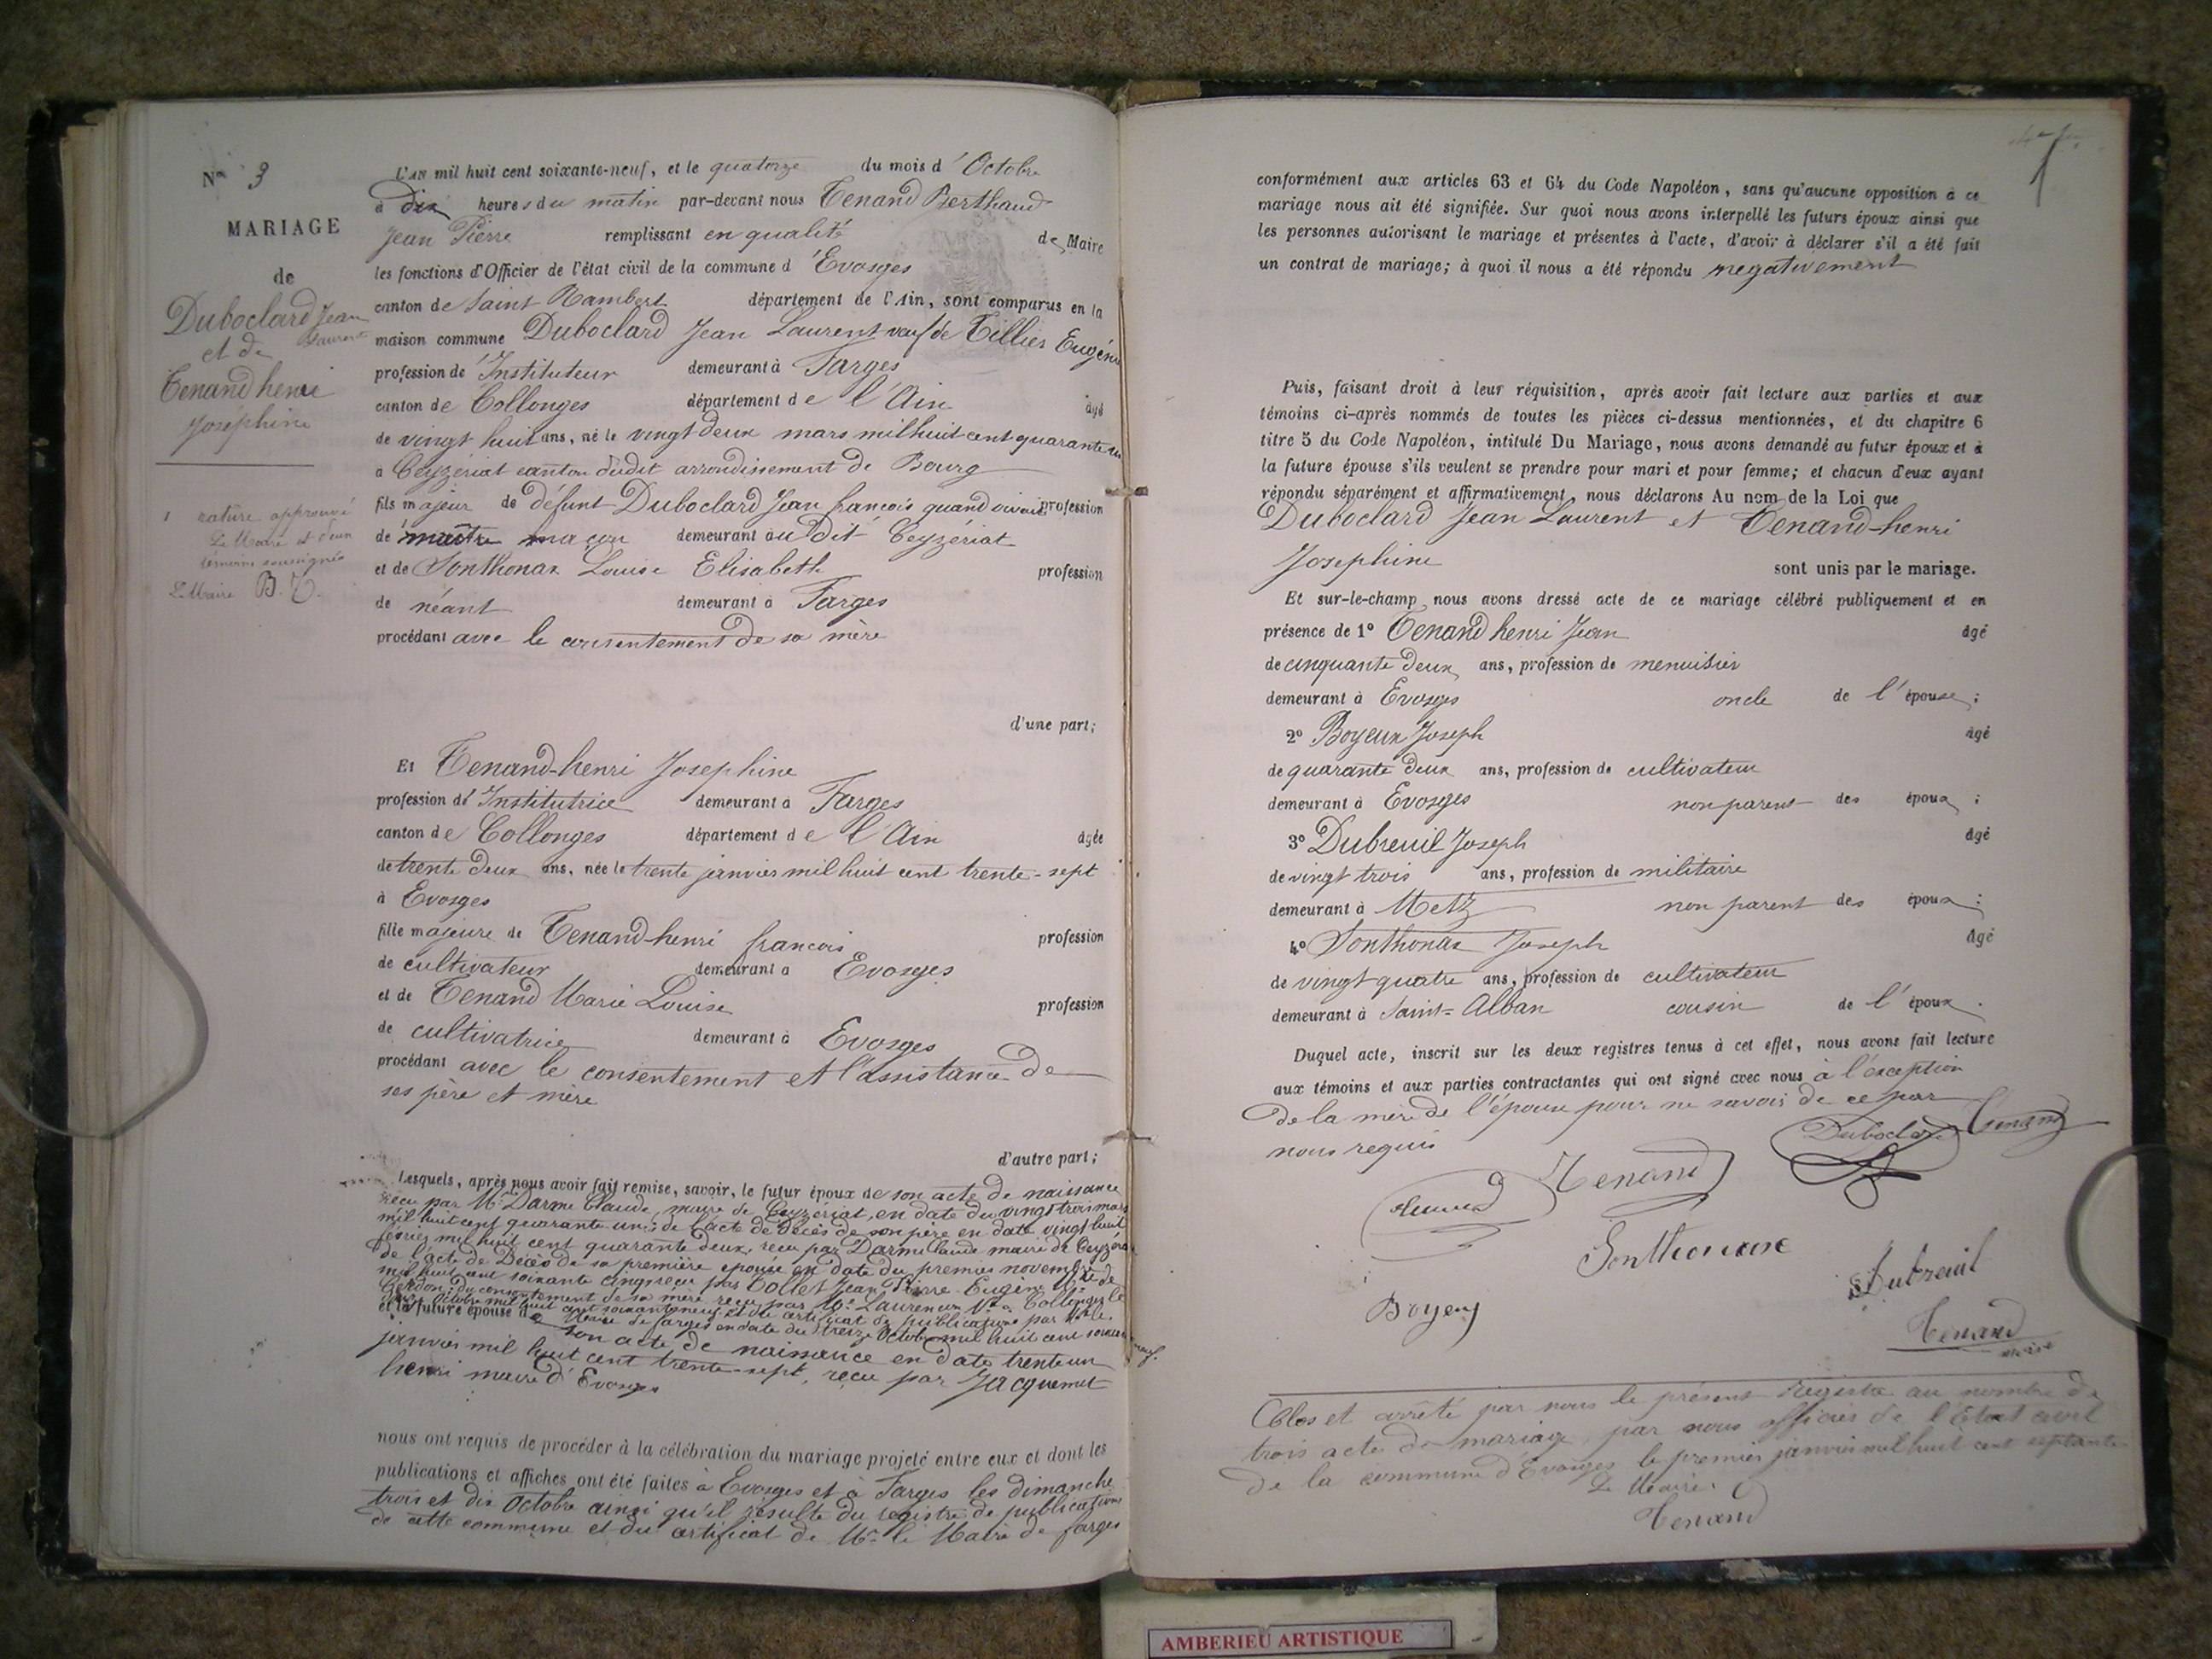 N° 3
MARIAGE
de
Duboclard Jean
Laurent
et de
Tenand henri
Joséphine
1 rature approuvé
Le Maire et deux
témoins soussignés
Le Maire B. T.
L'AN mil huit cent soixante-neuf, et le quatorze du mois d' Octobre
à dix heures du matin par-devant nous Tenand Berthaud
Jean Pierre remplissant en qualité de Maire
les fonctions d'Officier de l'état civil de la commune d' Evosges
canton de Saint Rambert département de l'Ain, sont comparus en la
maison commune Duboclard Jean Laurent veuf de Tillier Eugénie
profession de Instituteur demeurant à Farges
canton de Collonges département de l'Ain âgé
de vingt huit ans, né le vingt deux mars mil huit cent quarante un
à Ceyzériat canton dudit arrondissement de Bourg
fils majeur de défunt Duboclard Jean françois quand vivait profession
de maître maçon demeurant au dit Ceyzériat
et de Sonthonax Louise Elisabeth profession
de néant demeurant à Farges
procédant avec le consentement de sa mère
d'une part;
Et Tenand-henri Josephine
profession d' Institutrice demeurant à Farges
canton de Collonges département de l'Ain âgée
de trente deux ans, née le trente janvier mil huit cent trente-sept
à Evosges
fille majeure de Tenand-henri françois profession
de cultivateur demeurant à Evosges
et de Tenand Marie Louise profession
de cultivatrice demeurant à Evosges
procédant avec le consentement et l'assistance de
ses père et mère
d'autre part;
Lesquels, après nous avoir fait remise, savoir, le futur époux de son acte de naissance
reçu par Mr Darme Claude, maire de Ceyzériat, en date du vingt trois mars
mil huit cent quarante un; de l'acte de décès de son père en date vingt huit
février mil huit cent quarante deux, reçu par Darme Claude maire de Ceyzériat
de l'acte de Décès de sa première épouse en date du premier novembre
mil huit cent soixante cinq reçu par Collet Jean Pierre Eugène
du consentement de sa mère reçu par Me Laurencin Nre à Collonges le
Octobre mil huit cent soixante neuf et du certificat de publications par Mr le
Maire de farges en date du treize Octobre mil huit cent soixante neuf.
et la future épouse de son acte de naissance en date trente un
janvier mil huit cent trente-sept, reçu par Jacquemet
henri maire d'Evosges
nous ont requis de procéder à la célébration du mariage projeté entre eux et dont les
publications et affiches ont été faites à Evosges et à Farges les dimanche
trois et dix Octobre ainsi qu'il résulte du registre de publications
de cette commune et du certificat de Mr le Maire de farges
conformément aux articles 63 et 64 du Code Napoléon, sans qu'aucune opposition à ce
mariage nous ait été signifiée. Sur quoi nous avons interpellé les futurs époux ainsi que
les personnes autorisant le mariage et présentes à l'acte, d'avoir à déclarer s'il a été fait
un contrat de mariage; à quoi il nous a été répondu negativement
Puis, faisant droit à leur réquisition, après avoir fait lecture aux parties et aux
témoins ci-après nommés de toutes les pièces ci-dessus mentionnées, et du chapitre 6
titre 5 du Code Napoléon, intitulé Du Mariage, nous avons demandé au futur époux et à
la future épouse s'ils veulent se prendre pour mari et pour femme; et chacun d'eux ayant
répondu séparément et affirmativement, nous déclarons Au nom de la Loi que
Duboclard Jean Laurent et Tenand-henri
Josephine sont unis par le mariage.
Et sur-le-champ nous avons dressé acte de ce mariage célébré publiquement et en
présence de 1° Tenand henri Jean âgé
de cinquante deux ans, profession de menuisier
demeurant à Evosges oncle de l' épouse;
2° Boyeux Joseph âgé
de quarante deux ans, profession de cultivateur
demeurant à Evosges non parent des époux;
3° Dubreuil Joseph âgé
de vingt trois ans, profession de militaire
demeurant à Metz non parent des époux;
4° Sonthonax Joseph âgé
de vingt quatre ans, profession de cultivateur
demeurant à Saint-Alban cousin de l' époux.
Duquel acte, inscrit sur les deux registres tenus à cet effet, nous avons fait lecture
aux témoins et aux parties contractantes qui ont signé avec nous à l'exception
de la mère de l'épouse pour ne savoir de ce par
nous requis
Duboclard Tenand
Tenand
Sonthonax
Dubreuil
Boyeux
Tenand
maire
Clos et arrêté par nous le présent registre au nombre de
trois acte de mariage par nous officier de l'Etat civil
de la commune d'Evosges le premier janvier mil huit cent septante
Le Maire
Tenand
AMBERIEU ARTISTIQUE